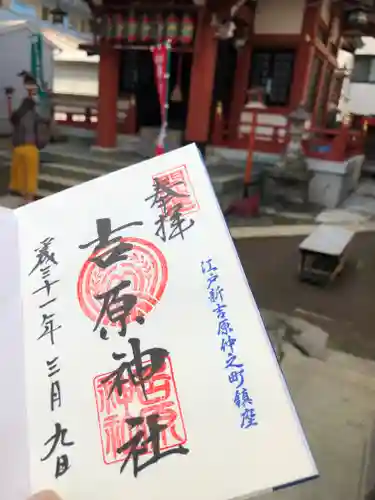 江戸新吉原仲之町鎮座
奉拝
吉原神社
吉原
神社
平成三十一年三月九日